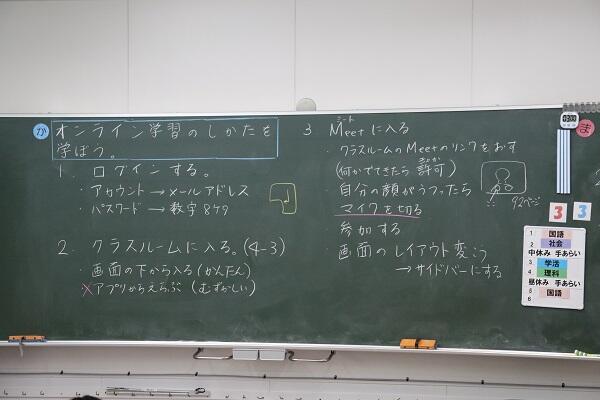 か
オンライン学習のしかたを
学ぼう。
1. ログインする。
・アカウント→メールアドレス
・パスワード→数字8ケタ
2. クラスルームに入る。(4-3)
・画面の下から入る(かんたん)
×アプリからえらぶ(むずかしい)
ミート
3 Meetに入る
・クラスルームのMeetのリンクをおす
きょか
(何かでてきたら許可)
・自分の顔がうつったら
マイクを切る
92ページ
・参加する
・画面のレイアウト変こう
→サイドバーにする
ま
3 3
1 国語
2 社会
中休み 手あらい
3 学活
4 理科
昼休み 手あらい
5 国語
6